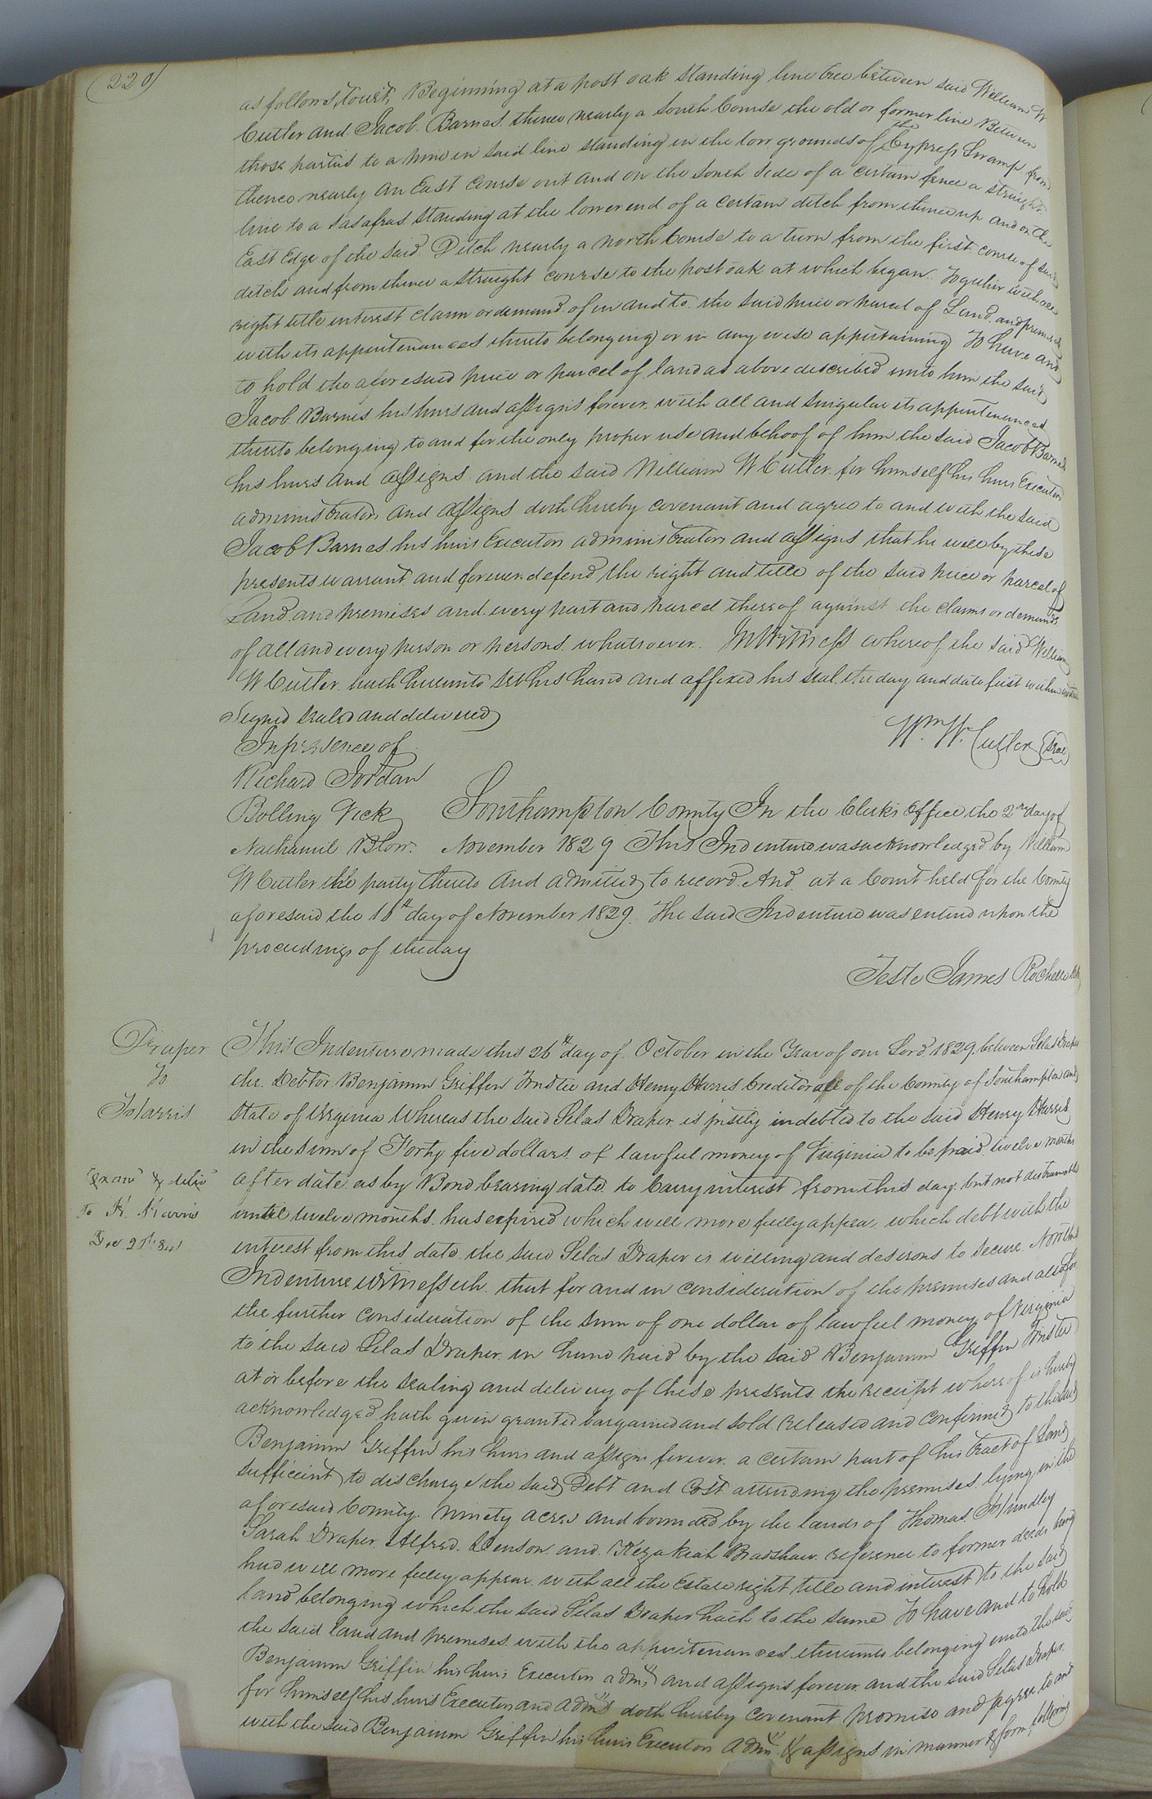 (220)
as follows, towit, Beginning at a post oak standing line tree between said William W
Cutler and Jacob Barnes thence nearly a south Course the old or former line Between
those parties to a pine in said line standing in the low grounds of the Cypress Swamp from
thence nearly an East Course out and on the south side of a certain fence a straight
line to a sasafras standing at the lower end of a certain ditch from thence up and on the
East Edge of the said Ditch nearly a north Course to a turn from the first course of said
ditch and from thence a straight course to the post oak at which began. Together with all
right title interest claim or demand of in and to the said piece or parcel of Land and premises
with its appurtenances thereto belonging or in any wise appertaining To have and
to hold the aforesaid piece or parcel of land as above described unto him the said
Jacob Barnes his heirs and assigns forever with all and singular its appurtenances
thereto belonging to and for the only proper use and behoof of him the said Jacob Barnes
his heirs and assigns and the said William W Cutler for himself his heirs Executors
administrators and assigns doth hereby covenant and agree to and with the said
Jacob Barnes his heirs Executors administrators and assigns that he will by these
presents warrant and forever defend the right and title of the said piece or parcel of
Land and premises and every part and parcel thereof against the claims or demands
of all and every person or persons whatsoever. In Witness whereof the said William
W Cutler hath hereunto set his hand and affixed his seal the day and date first within written
Signed sealed and delivered
In presence of
Wm W. Cutler (Seal)
Richard Jordan
Bolling Vick
Nathaniel Blow.
Southampton County In the Clerks Office the 2nd day of
November 1829 This Indenture was acknowledged by William
W Cutler the party thereto and admitted to record And at a Court held for the County
aforesaid the 16th day of November 1829. The said Indenture was entered upon the
proceedings of the day
Teste James Rochelle Clk
Draper
To
Harris
Exam'd & deliv'd
to H. Harris
Dec
This Indenture made this 26th day of October in the Year of our Lord 1829 between Silas Draper
the Debtor Benjamin Griffin Trustee and Henry Harris Creditor all of the County of Southampton and
State of Virginia Whereas the said Silas Draper is justly indebted to the said Henry Harris
in the sum of Forty five dollars of lawful money of Virginia to be paid twelve months
after date as by Bond bearing date to Carry interest from this day but not distrainable
until twelve months has expired which will more fully appear, which debt with the
interest from this date the said Silas Draper is willing and desirous to secure. Now this
Indenture Witnesseth that for and in consideration of the premises and also for
the further consideration of the sum of one dollar of lawful money of Virginia
to the said Silas Draper in hand paid by the said Benjamin Griffin Trustee
at or before the sealing and delivery of these presents the receipt whereof is hereby
acknowledged hath given granted bargained and sold released and confirmed to the said
Benjamin Griffin his heirs and assigns forever a certain part of his tract of Land
sufficient to discharge the said Debt and Cost attending the premises lying in the
aforesaid County. Ninety acres and bounded by the lands of Thomas Hundley
Sarah Draper, Alfred Denson and Hezekiah Bradshaw reference to former deeds being
had will more fully appear with all the Estate right title and interest to the said
land belonging which the said Silas Draper hath to the same To have and to hold
the said land and premises with the appurtenances thereunto belonging unto the said
Benjamin Griffin his heirs Executors adms and assigns forever and the said Silas Draper
for himself his heirs Executors and adms doth hereby covenant promise and agree to and
with the said Benjamin Griffin his heirs Executors adms & assigns in manner & form following